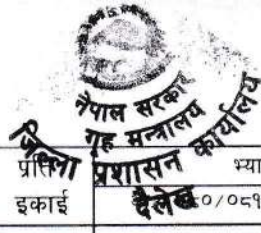 नेपाल सरकार
गृह मन्त्रालय
जिल्ला प्रशासन कार्यालय
दैलेख
प्रति
भ्या
इकाई
०/०८१